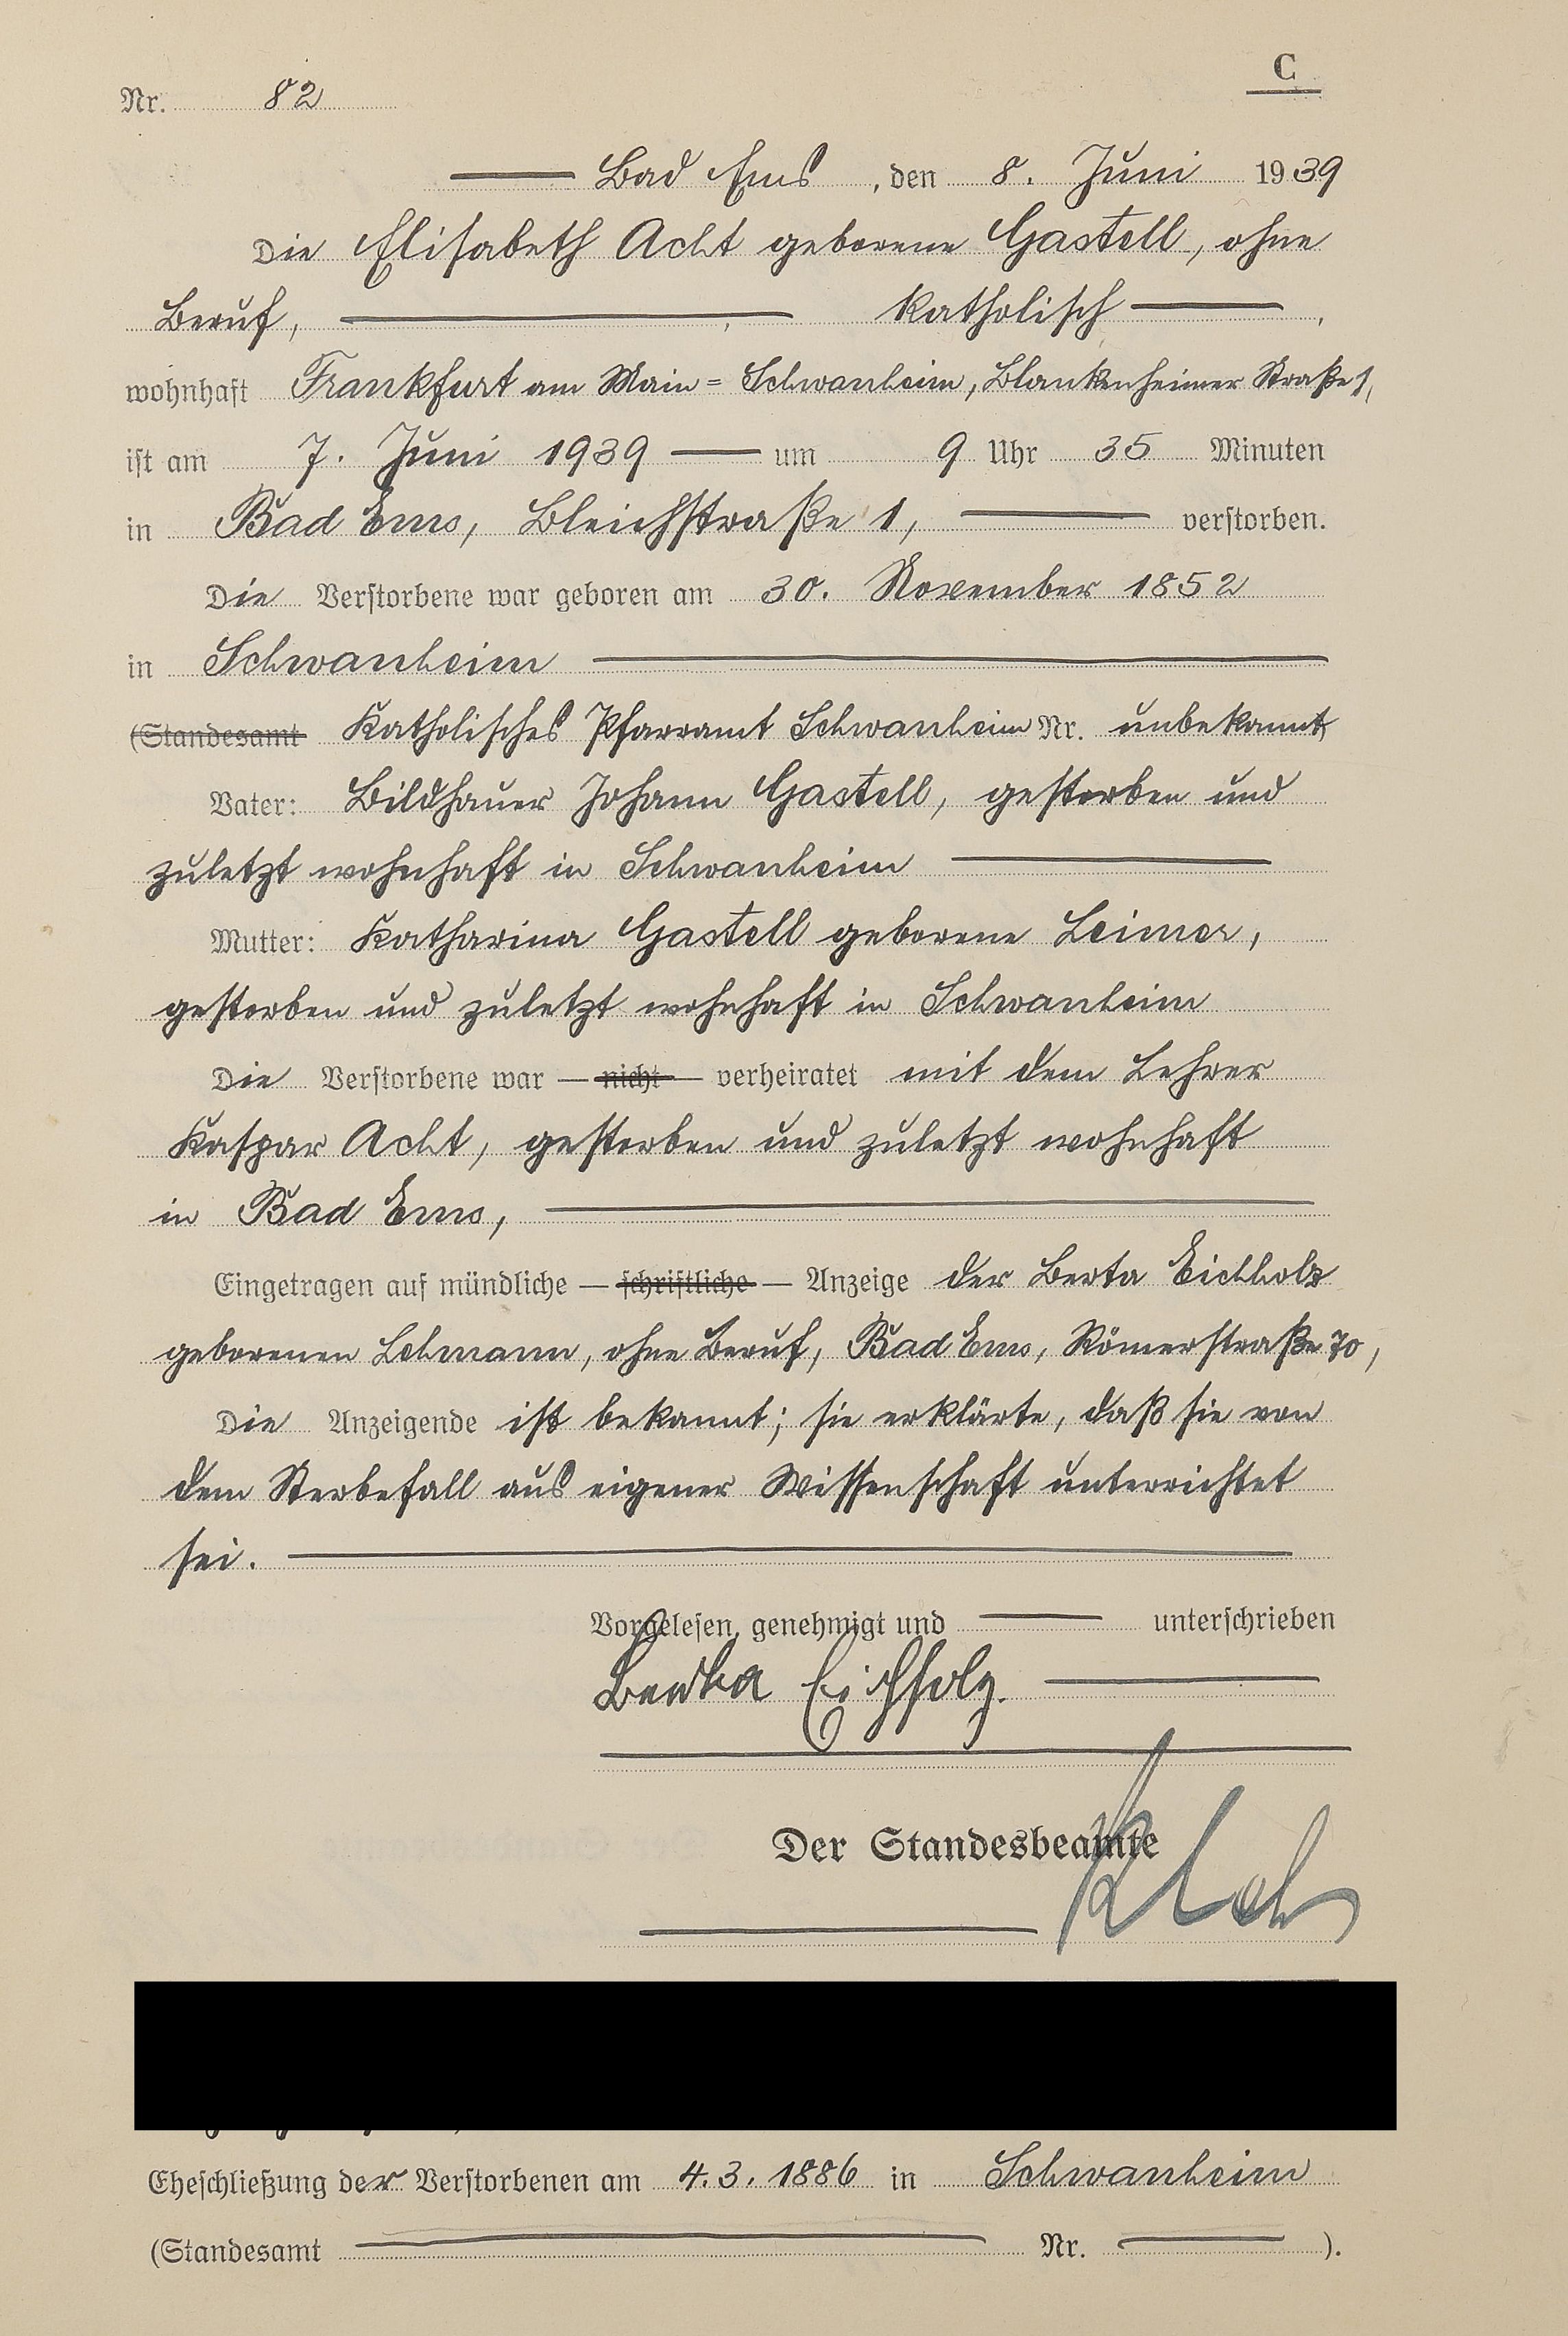 C
Nr. 82
Bad Ems, den 8. Juni 1939
Die Elisabeth Acht geborene Gastell, ohne
Beruf, katholisch,
wohnhaft Frankfurt am Main=Schwanheim, Blankenheimer Straße 1,
ist am 7. Juni 1939 um 9 Uhr 35 Minuten
in Bad Ems, Bleichstraße 1, verstorben.
Die Verstorbene war geboren am 30. November 1852
in Schwanheim
(Standesamt Katholisches Pfarramt Schwanheim Nr. unbekannt)
Vater: Bildhauer Johann Gastell, gestorben und
zuletzt wohnhaft in Schwanheim
Mutter: Katharina Gastell geborene Leimer,
gestorben und zuletzt wohnhaft in Schwanheim
Die Verstorbene war — nicht — verheiratet mit dem Lehrer
Kaspar Acht, gestorben und zuletzt wohnhaft
in Bad Ems,
Eingetragen auf mündliche — schriftliche — Anzeige der Berta Eichholz
geborenen Lehmann, ohne Beruf, Bad Ems, Römerstraße 70,
Die Anzeigende ist bekannt; sie erklärte, daß sie von
dem Sterbefall aus eigener Wissenschaft unterrichtet
sei.
Vorgelesen, genehmigt und unterschrieben
Berta Eichholz.
Der Standesbeamte
Eheschließung der Verstorbenen am 4.3.1886 in Schwanheim
(Standesamt Nr. ).